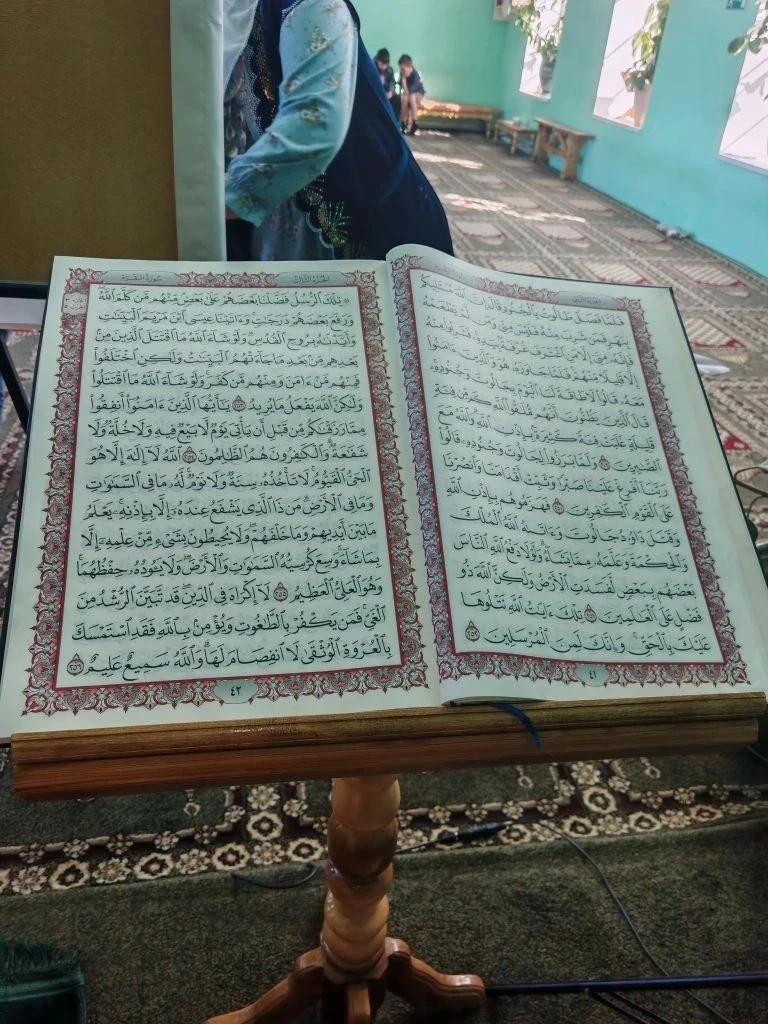 الجزء الثاني
فَلَمَّا فَصَلَ طَالُوتُ بِٱلْجُنُودِ قَالَ إِنَّ ٱللَّهَ مُبْتَلِيكُم
بِنَهَرٍ فَمَن شَرِبَ مِنْهُ فَلَيْسَ مِنِّي وَمَن لَّمْ يَطْعَمْهُ
فَإِنَّهُۥ مِنِّيٓ إِلَّا مَنِ ٱغْتَرَفَ غُرْفَةَۢ بِيَدِهِۦ فَشَرِبُوا۟ مِنْهُ
إِلَّا قَلِيلًا مِّنْهُمْ فَلَمَّا جَاوَزَهُۥ هُوَ وَٱلَّذِينَ ءَامَنُوا۟
مَعَهُۥ قَالُوا۟ لَا طَاقَةَ لَنَا ٱلْيَوْمَ بِجَالُوتَ وَجُنُودِهِۦ
قَالَ ٱلَّذِينَ يَظُنُّونَ أَنَّهُم مُّلَٰقُوا۟ ٱللَّهِ كَم مِّن فِئَةٍ
قَلِيلَةٍ غَلَبَتْ فِئَةً كَثِيرَةَۢ بِإِذْنِ ٱللَّهِ وَٱللَّهُ مَعَ
ٱلصَّٰبِرِينَ ٢٤٩ وَلَمَّا بَرَزُوا۟ لِجَالُوتَ وَجُنُودِهِۦ قَالُوا۟
رَبَّنَآ أَفْرِغْ عَلَيْنَا صَبْرًا وَثَبِّتْ أَقْدَامَنَا وَٱنصُرْنَا
عَلَى ٱلْقَوْمِ ٱلْكَٰفِرِينَ ٢٥٠ فَهَزَمُوهُم بِإِذْنِ ٱللَّهِ
وَقَتَلَ دَاوُۥدُ جَالُوتَ وَءَاتَىٰهُ ٱللَّهُ ٱلْمُلْكَ
وَٱلْحِكْمَةَ وَعَلَّمَهُۥ مِمَّا يَشَآءُ وَلَوْلَا دَفْعُ ٱللَّهِ ٱلنَّاسَ
بَعْضَهُم بِبَعْضٍ لَّفَسَدَتِ ٱلْأَرْضُ وَلَٰكِنَّ ٱللَّهَ ذُو
فَضْلٍ عَلَى ٱلْعَٰلَمِينَ ٢٥١ تِلْكَ ءَايَٰتُ ٱللَّهِ نَتْلُوهَا
عَلَيْكَ بِٱلْحَقِّ وَإِنَّكَ لَمِنَ ٱلْمُرْسَلِينَ ٢٥٢
٤١
الجزء الثالث
سورة البقرة
۞ تِلْكَ ٱلرُّسُلُ فَضَّلْنَا بَعْضَهُمْ عَلَىٰ بَعْضٍ مِّنْهُم مَّن كَلَّمَ ٱللَّهُ
وَرَفَعَ بَعْضَهُمْ دَرَجَٰتٍ وَءَاتَيْنَا عِيسَى ٱبْنَ مَرْيَمَ ٱلْبَيِّنَٰتِ
وَأَيَّدْنَٰهُ بِرُوحِ ٱلْقُدُسِ وَلَوْ شَآءَ ٱللَّهُ مَا ٱقْتَتَلَ ٱلَّذِينَ مِنۢ
بَعْدِهِم مِّنۢ بَعْدِ مَا جَآءَتْهُمُ ٱلْبَيِّنَٰتُ وَلَٰكِنِ ٱخْتَلَفُوا۟
فَمِنْهُم مَّنْ ءَامَنَ وَمِنْهُم مَّن كَفَرَ وَلَوْ شَآءَ ٱللَّهُ مَا ٱقْتَتَلُوا۟
وَلَٰكِنَّ ٱللَّهَ يَفْعَلُ مَا يُرِيدُ ٢٥٣ يَٰٓأَيُّهَا ٱلَّذِينَ ءَامَنُوٓا۟ أَنفِقُوا۟
مِمَّا رَزَقْنَٰكُم مِّن قَبْلِ أَن يَأْتِيَ يَوْمٌ لَّا بَيْعٌ فِيهِ وَلَا خُلَّةٌ وَلَا
شَفَٰعَةٌ وَٱلْكَٰفِرُونَ هُمُ ٱلظَّٰلِمُونَ ٢٥٤ ٱللَّهُ لَآ إِلَٰهَ إِلَّا هُوَ
ٱلْحَيُّ ٱلْقَيُّومُ لَا تَأْخُذُهُۥ سِنَةٌ وَلَا نَوْمٌ لَّهُۥ مَا فِي ٱلسَّمَٰوَٰتِ
وَمَا فِي ٱلْأَرْضِ مَن ذَا ٱلَّذِي يَشْفَعُ عِندَهُۥٓ إِلَّا بِإِذْنِهِۦ يَعْلَمُ
مَا بَيْنَ أَيْدِيهِمْ وَمَا خَلْفَهُمْ وَلَا يُحِيطُونَ بِشَيْءٍ مِّنْ عِلْمِهِۦٓ إِلَّا
بِمَا شَآءَ وَسِعَ كُرْسِيُّهُ ٱلسَّمَٰوَٰتِ وَٱلْأَرْضَ وَلَا يَـُٔودُهُۥ حِفْظُهُمَا
وَهُوَ ٱلْعَلِيُّ ٱلْعَظِيمُ ٢٥٥ لَآ إِكْرَاهَ فِي ٱلدِّينِ قَد تَّبَيَّنَ ٱلرُّشْدُ مِنَ
ٱلْغَيِّ فَمَن يَكْفُرْ بِٱلطَّٰغُوتِ وَيُؤْمِنۢ بِٱللَّهِ فَقَدِ ٱسْتَمْسَكَ
بِٱلْعُرْوَةِ ٱلْوُثْقَىٰ لَا ٱنفِصَامَ لَهَا وَٱللَّهُ سَمِيعٌ عَلِيمٌ ٢٥٦
٤٢